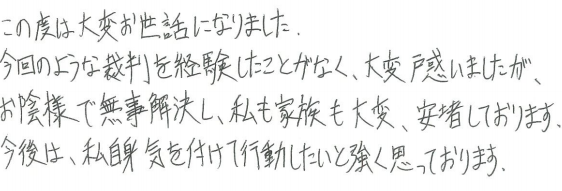 この度は大変お世話になりました.
今回のような裁判を経験したことがなく、大変戸惑いましたが、
お陰様で無事解決し、私も家族も大変、安堵しております.
今後は、私自身気を付けて行動したいと強く思っております.